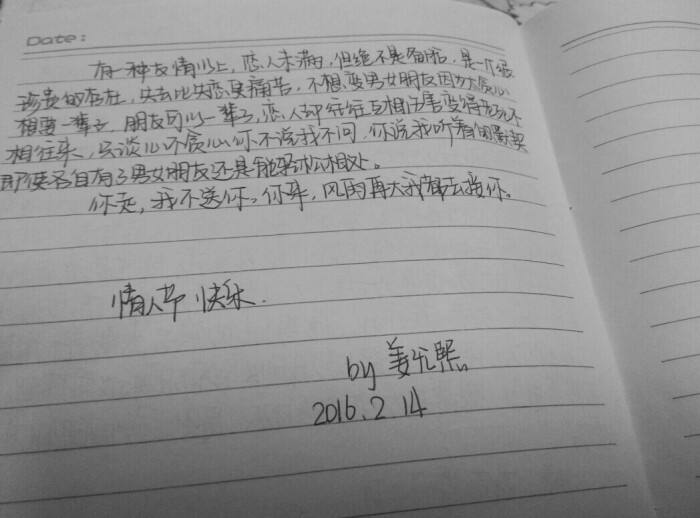 Date:
有一种友情以上,恋人未满,但绝不是备胎,是一个很
珍贵的存在,失去比失恋更痛苦,不想变男女朋友因为太贪心
想要一辈子,朋友可以一辈子,恋人却往往互相伤害变得老死不
相往来,只谈心不贪心你不说我不问,你说我听着的默契
即使各自有了男女朋友还是能轻松相处。
你走,我不送你。你来,风雨再大我都去接你。
情人节 快乐.
by 姜
2016.2.14